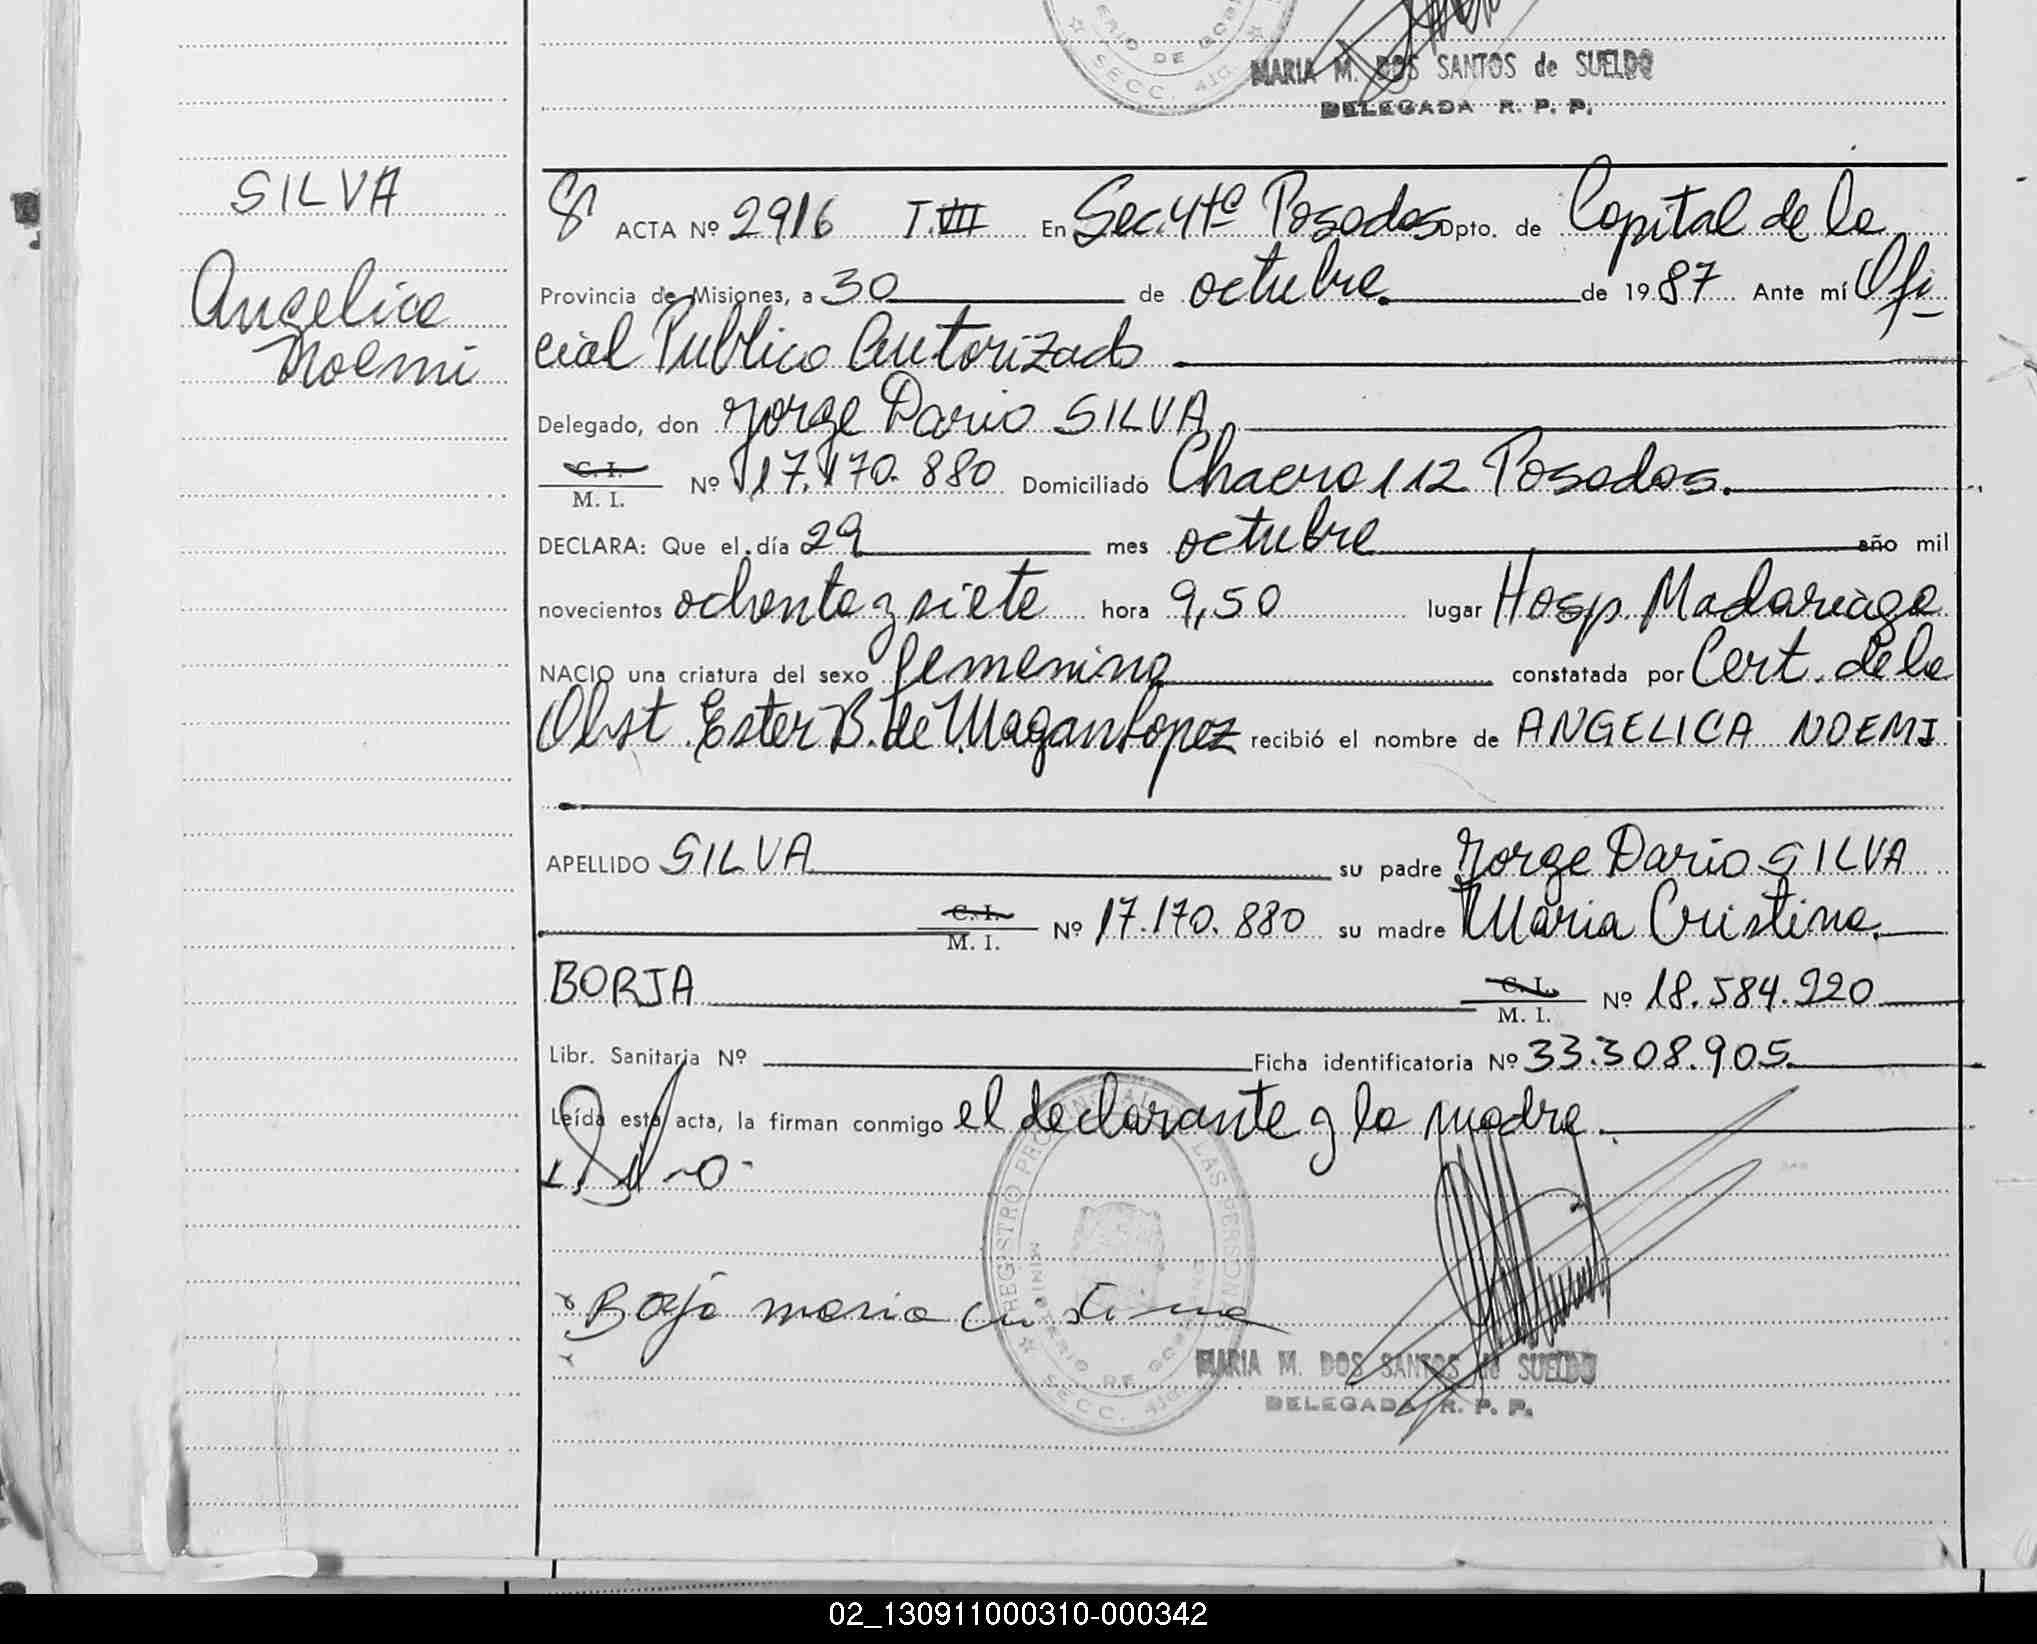 MINISTERIO DE GOBIERNO
SECC. 4ta
MARIA M. DOS SANTOS de SUELDO
DELEGADA R. P. P.
SILVA
Angelica
Noemi
8 ACTA Nº 2916 T.VII En Sec. 4ta Posadas Dpto. de Capital de la
Provincia de Misiones, a 30 de octubre. de 1987 Ante mí Ofi
cial Publico Autorizado
Delegado, don Jorge Dario SILVA
C. I.
M. I. Nº 17.170.880 Domiciliado Chacra 112 Posadas.
DECLARA: Que el día 29 mes octubre año mil
novecientos ochenta y siete hora 9,50 lugar Hosp. Madariaga
NACIO una criatura del sexo femenino constatada por Cert. de la
Obst. Ester B. de Magan Lopez recibió el nombre de ANGELICA NOEMI
APELLIDO SILVA su padre Jorge Dario SILVA
C. I.
M. I. Nº 17.170.880 su madre Maria Cristina
BORJA C. I.
M. I. Nº 18.584.220
Libr. Sanitaria Nº Ficha identificatoria Nº 33.308.905.
Leída esta acta, la firman conmigo el declarante y la madre.
Borja maria cristina
REGISTRO PROVINCIAL DE LAS PERSONAS
MINISTERIO DE GOBIERNO
SECC. 4ta
MARIA M. DOS SANTOS de SUELDO
DELEGADA R. P. P.
02_130911000310-000342